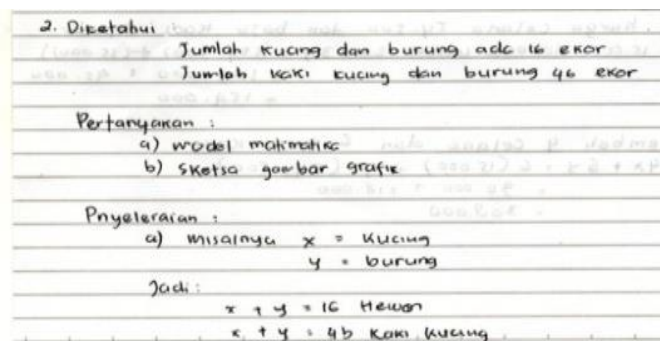 2. Diketahui
Jumlah kucing dan burung ada 16 ekor
Jumlah kaki kucing dan burung 46 ekor
Pertanyakan :
a) model matimatika
b) sketsa gambar grafik
Pnyeleraian :
a) misalnya x = Kucing
y = burung
Jadi :
x + y = 16 Hewan
x + y = 46 kaki kucing